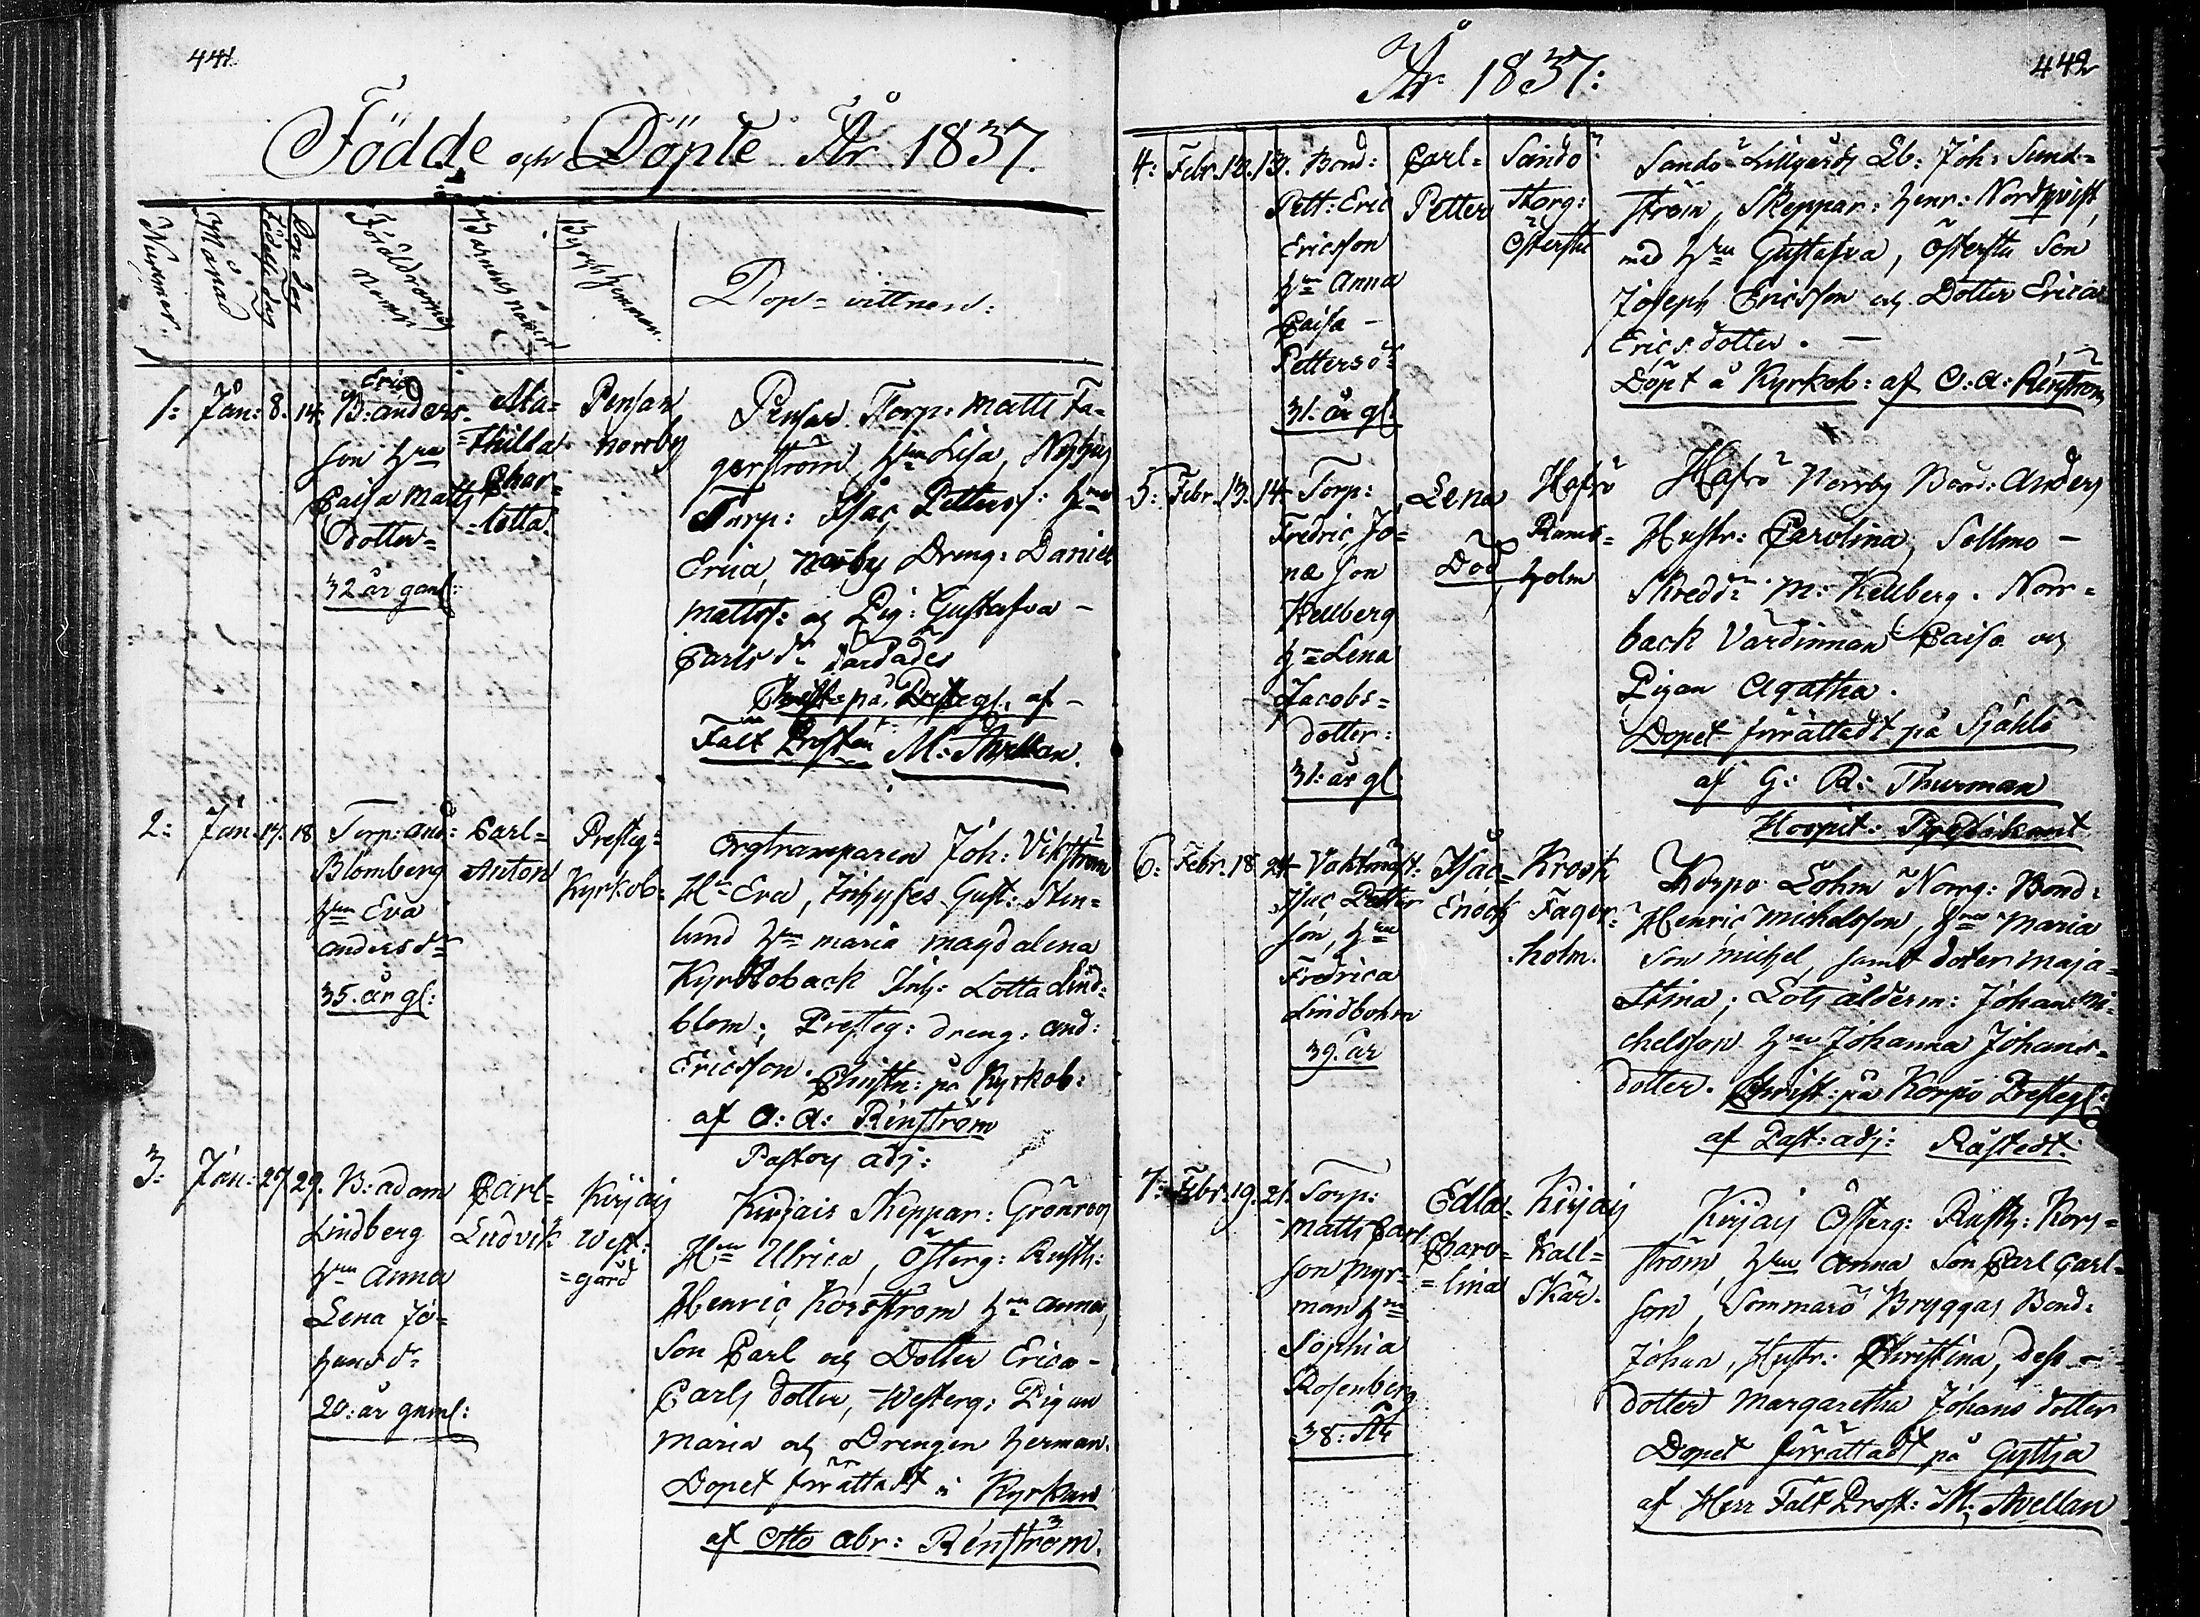 441
Födde och Döpte År 1837.
Nummer.
Månad
Födelsedag
Döp. dag
Föräldrarnes Namn.
Barnens namn
By och hemman.
Dop-vittnen:
1: Jan: 8. 14.
B: Eric Anders-
son Hru
Caisa Matts
dotter=
32 år gaml:
Ma-
=thilda
Char-
=lotta.
Pensar
Norrby
Pensar Torp: Matts Fa-
gerström, Hru Lisa, Nyhus
Torp: Isac Petters: Hru
Erica, Norrby Dreng: Daniel
Mattss: och Pig: Gustafva -
Carls dr
Christ: på Prestegl. af -
Fält Prosten M: Avellan.
2: Jan. 17. 18.
Torp: And:
Blomberg
Hru Eva
Anders dr
35. år gl:
Carl=
Anton
Presteg:
Kyrkob:
Orgtramparen Joh: Vikström
Hu Eva, Inhyses Gust: Sten=
lund Hru Maria Magdalena
Kyrkoback Inh: Lotta Lind=
blom; Presteg: dreng. And:
Ericsson. Christn: på Kyrkob:
af O: A: Renström
Pastors adj:
3: Jan: 27 29.
B: Adam
Lindberg
Hru Anna
Lena Jo=
hans dr
20: år gaml:
Carl=
Ludvik
Kirjais
West=
=gård
Kirjais Skeppar: Grönroos
Hru Ulrica, Österg: Rusth:
Henric Korsström Hru Anna,
Son Carl och Dotter Erica -
Carls dotter, Westerg: Pigan
Maria och Drengen Herman.
Dopet förrättadt i Kyrkan
af Otto Abr: Renström.
År 1837:
442
4: Febr. 12. 13.
Bond:
Pett: Eric
Ericsson
Hru Anna
Caisa -
Petters dr
31. år gl:
Carl=
Petter
Sandö
Storg:
Östersta
Sandö Lillgårds Lb: Joh: Sund=
ström, Skeppar: Henr: Nordqvist,
med Hru Gustafva, Östersta Son
Joseph Ericsson och Dotter Erica
Erics dotter. —
Döpt å Kyrkob: af O: A: Renström
5: Febr. 13. 14.
Torp:
Fredric Jo=
næson
Kellberg
Hru Lena
Jacobs=
dotter:
31: år gl:
Lena
Död
Hafrö
Rams=
holm
Hafrö Norrby Bond: Anders
Hustr: Carolina, Sellmo -
Skredd: M: Kellberg. Norr=
back Värdinnan Caisa och
Pigan Agatha.
Dopet förrättadt på Sjählö
af G: R: Thurman
Hospit: Predikant
6: Febr. 18 24
Vaktmäst:
Isac Petter
son, Hru
Fredrica
Lindbohm
39. år
Isac=
Enoch
Krook
Fager=
holm.
Korpo Lohm Norrg: Bond:
Henric Michelsson, Hru Maria
Son Michel, samt doter Maja
Stina; Lots ålderm: Johan Mi=
chelsson Hru Johanna Johans=
dotter. Christ: på Korpo Prestegl:
af Past: adj: Råstedt:
7: Febr. 19. 21.
Torp:
Matts Carl
son Myr=
man Hru
Sophia
Rosenberg
38: År
Edla=
Charo=
=lina
Kirjais
Kall=
Skär.
Kirjais Österg: Rusth: Kors=
ström, Hru Anna Son Carl Carl=
son, Sommarö Bryggas Bond:
Johan, Hustr: Christina, dess -
dotter Margaretha Johans dotter
Dopet förrättadt på Gyttja
af Herr Fält Prost: M: Avellan